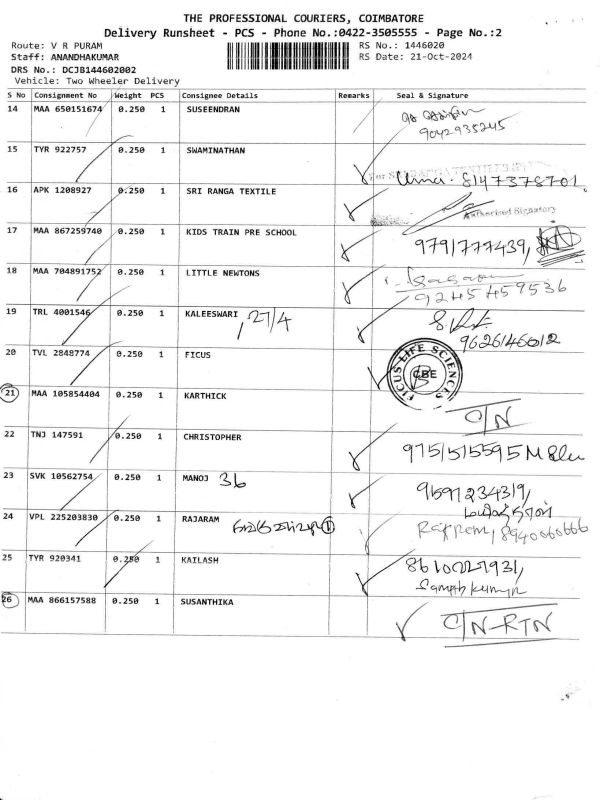 THE PROFESSIONAL COURIERS, COIMBATORE
Delivery Runsheet - PCS - Phone No.:0422-3505555 - Page No.:2
Route: V R PURAM RS No.: 1446020
Staff: ANANDHAKUMAR RS Date: 21-Oct-2024
DRS No.: DCJB144602002
Vehicle: Two Wheeler Delivery
S No Consignment No Weight PCS Consignee Details Remarks Seal & Signature
14 MAA 650151674 0.250 1 SUSEENDRAN
9042935245
15 TYR 922757 0.250 1 SWAMINATHAN
Uma 8147378701
16 APK 1208927 0.250 1 SRI RANGA TEXTILE
Authorised Signatory
17 MAA 867259740 0.250 1 KIDS TRAIN PRE SCHOOL
9791777439,
18 MAA 704891752 0.250 1 LITTLE NEWTONS
9245459536
19 TRL 4001546 0.250 1 KALEESWARI , 27/4
9626146012
20 TVL 2848774 0.250 1 FICUS
FICUS LIFE SCIENCES
CBE
21 MAA 105854404 0.250 1 KARTHICK
C/N
22 TNJ 147591 0.250 1 CHRISTOPHER
9751515595
23 SVK 10562754 0.250 1 MANOJ 36
9597234319,
24 VPL 225203830 0.250 1 RAJARAM
8940660666
25 TYR 920341 0.250 1 KAILASH
8610227931,
Sampath kumar
26 MAA 866157588 0.250 1 SUSANTHIKA
C/N-RTN